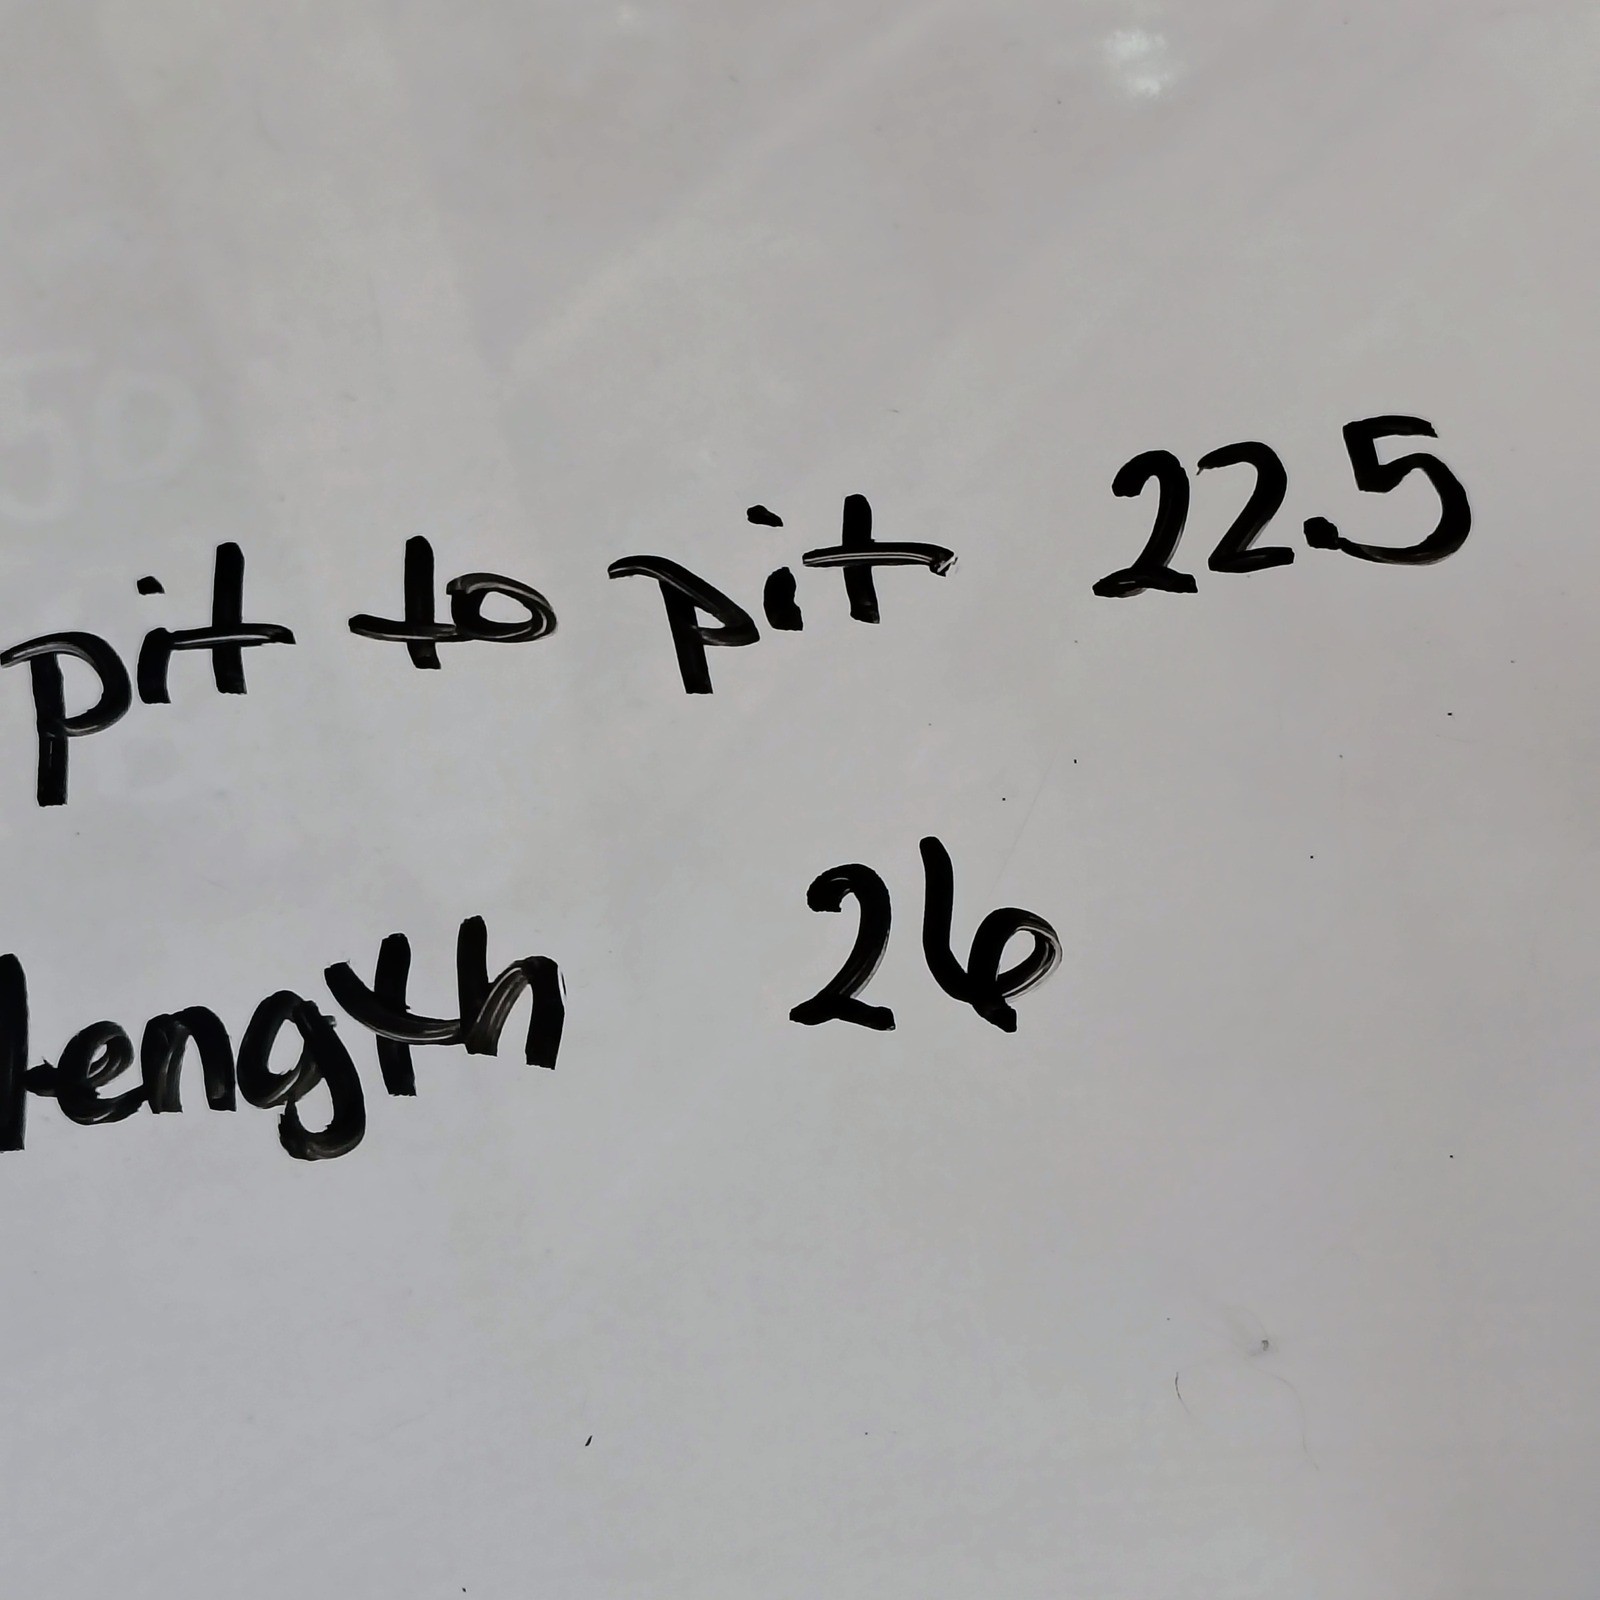 pit to pit 22.5
length 26